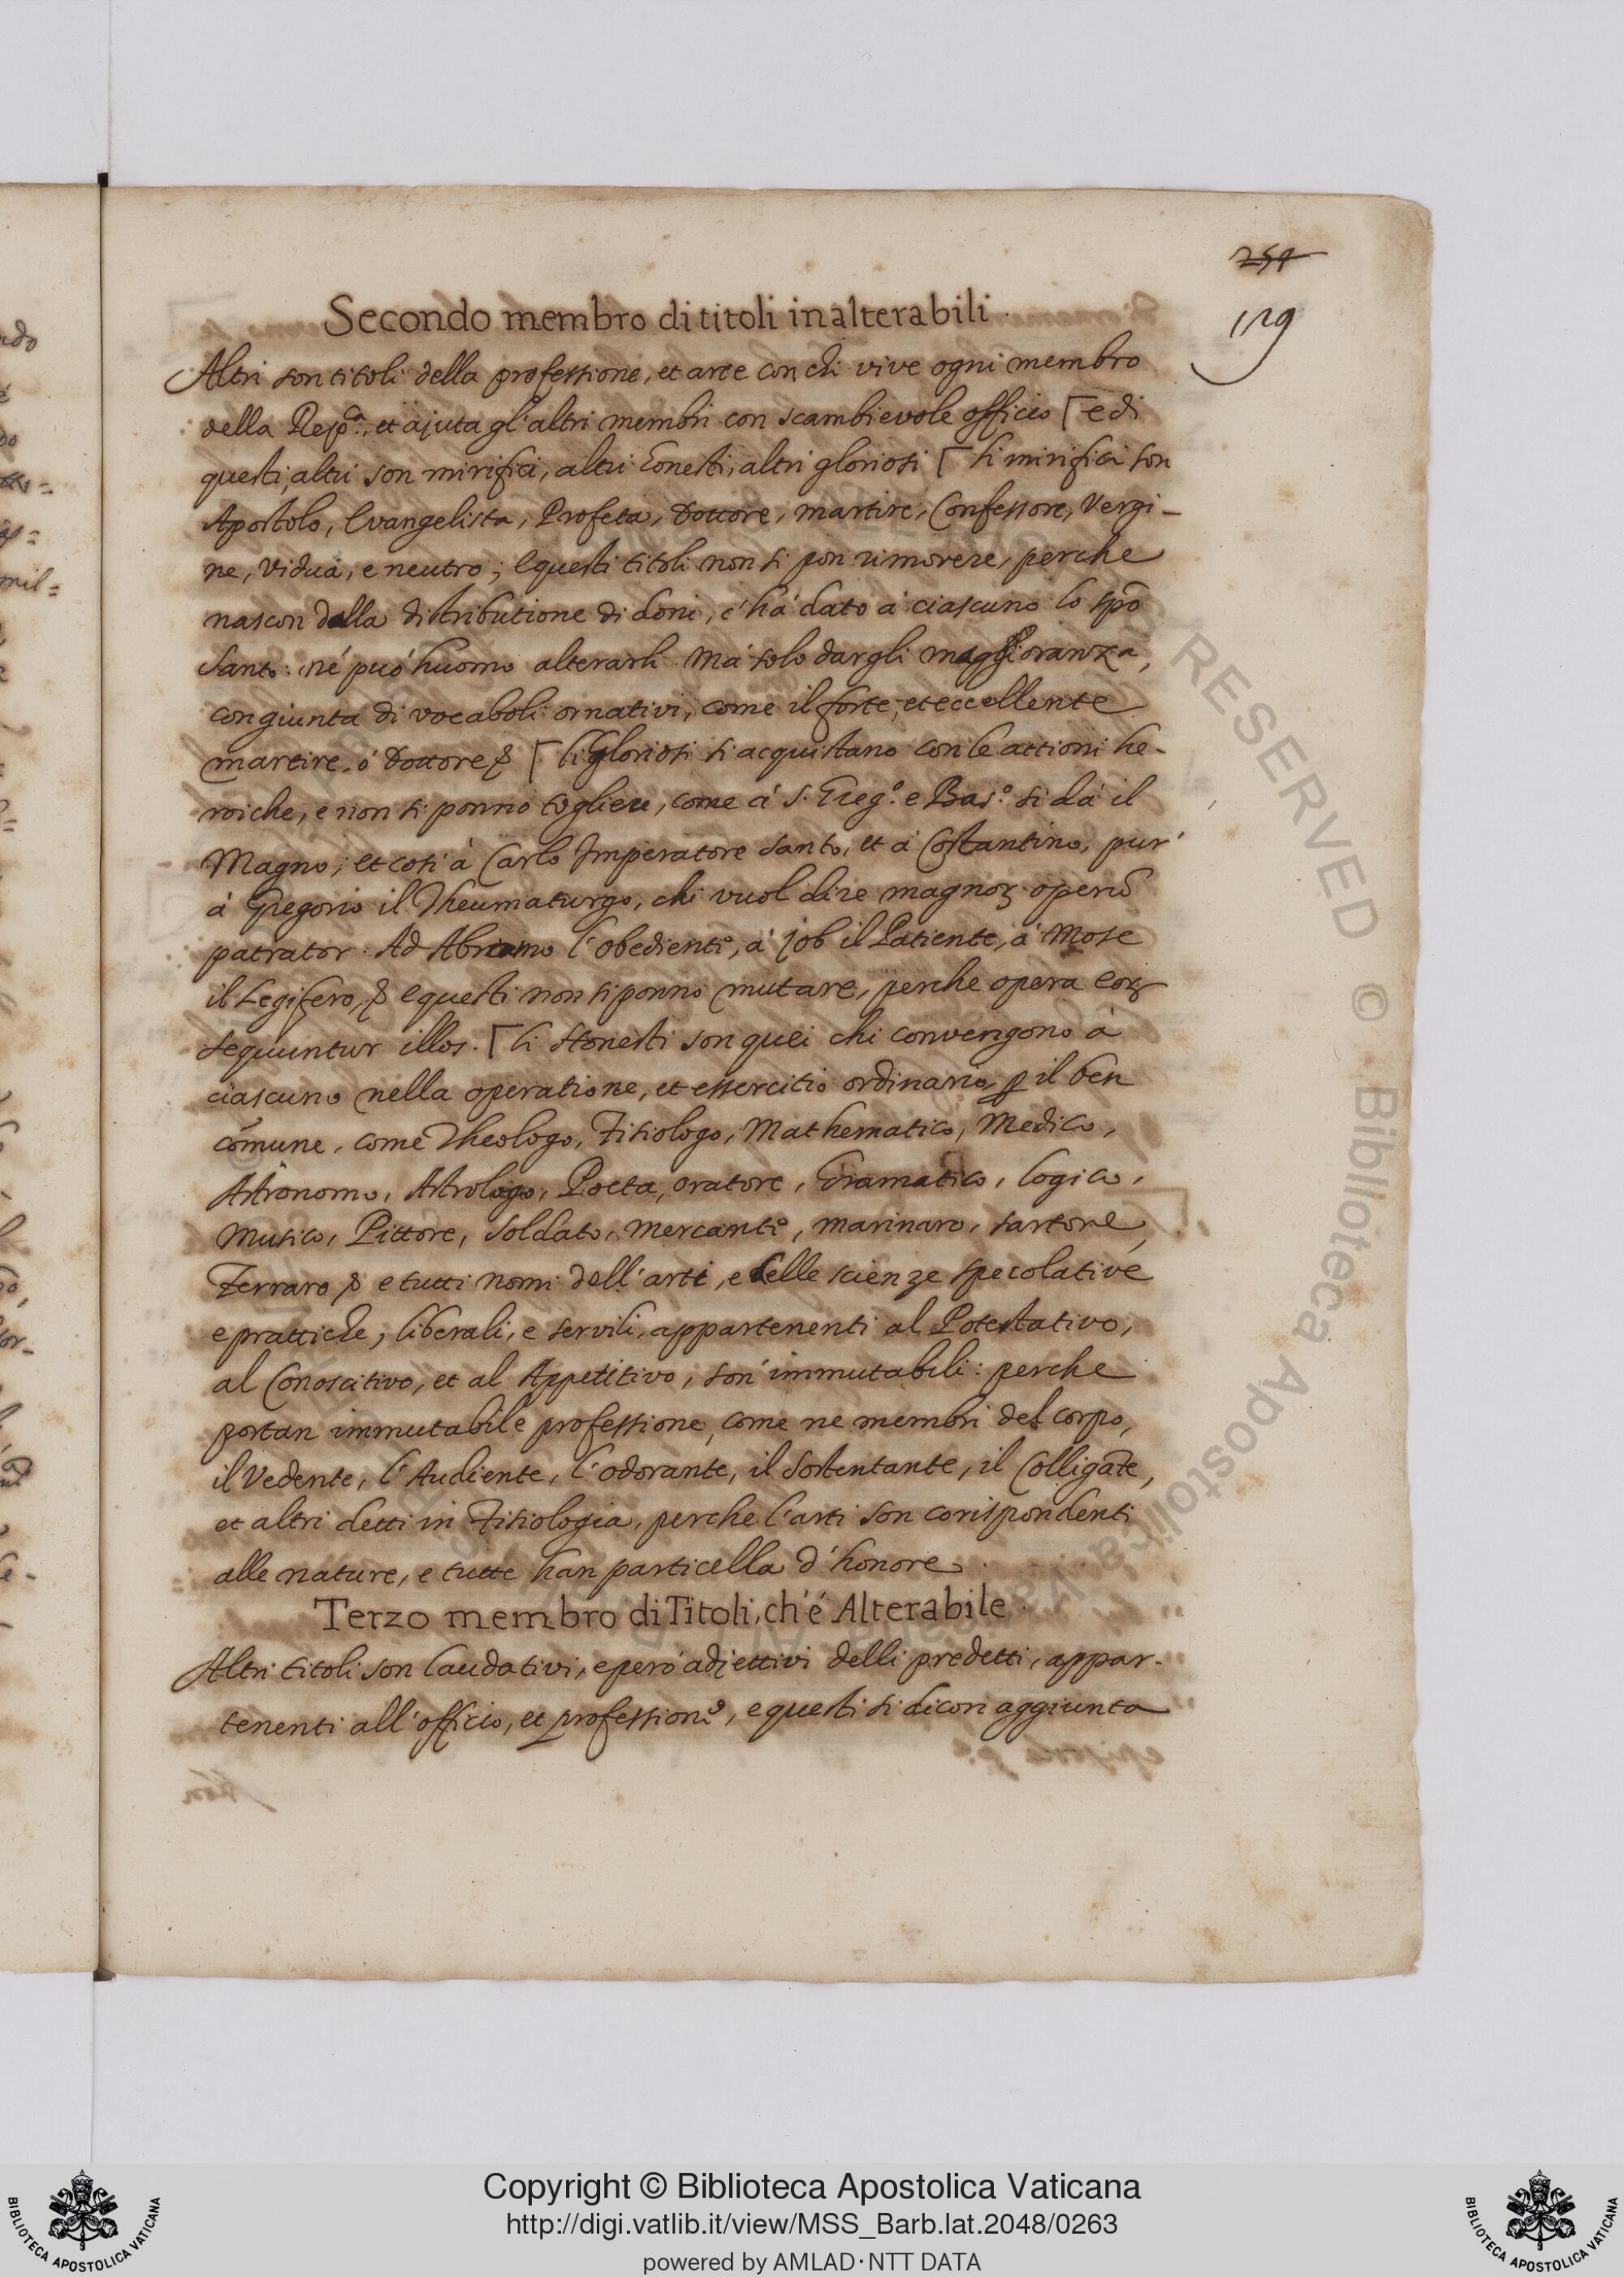 254
129
Secondo membro di titoli inalterabili.
Altri son titoli della professione, et arte con chi vive ogni membro
della Rep.ca, et ajuta gl'altri membri con scambievole officio [e di
questi, altri son mirifici, altri honesti, altri gloriosi [li mirifici son
Apostolo, Evangelista, Profeta, Dottore, martire, Confessore, Vergi-
ne, Vidua, e neutro; e questi titoli non si pon rimovere, perche
nascon dalla distributione di doni, c'há dato á ciascuno lo spō
santo: né puó huomo alterarli. má solo dargli maggioranza,
con giunta di vocaboli ornativi, come il forte, et eccellente
martire, ó Dottore &. [li Gloriosi si acquistano con le attioni he-
roiche, e non si ponno togliere, come á S. Greg.o e Bas.o si dá il
Magno; et cosi á Carlo Imperatore santo, et á Costantino, pur'
á Gregorio il Theumaturgo, chi vuol dire magnoꝝ operū
patrator. Ad Abramo l'obediente, á Job il Patiente, á Mose
il Legifero, & e questi non si ponno mutare, perche opera eoꝝ
sequuntur illos. [li Honesti son quei chi convengono á
ciascuno nella operatione, et essercitio ordinario, ꝑ il ben
cōmune, come Theologo, Fisiologo, Mathematico, Medico,
Astronomo, Astrologo, Poeta, oratore, Gramatico, logico,
Musico, Pittore, soldato, mercante, marinaro, sartore,
Ferraro & e tutti nomi dell'arti, e delle scienze specolative
e prattiche, liberali, e servili, appartenenti al Potestativo,
al Conoscitivo, et al Appetitivo, son' immutabili: perche
portan immutabile professione, come ne membri del corpo,
il Vedente, l'Audiente, l'odorante, il sostentante, il Colligāte,
et altri detti in Fisiologia, perche l'arti son corispondenti
alle nature, e tutte han particella d'honore.
Terzo membro di Titoli, ch'é Alterabile.
Altri titoli son laudativi, e peró adjettivi delli predetti, appar-
tenenti all'officio, et professione, e questi si dicon aggiunta
RESERVED © Biblioteca Apostolica Vaticana
Copyright © Biblioteca Apostolica Vaticana
http://digi.vatlib.it/view/MSS_Barb.lat.2048/0263
powered by AMLAD·NTT DATA
BIBLIOTECA APOSTOLICA VATICANA
BIBLIOTECA APOSTOLICA VATICANA